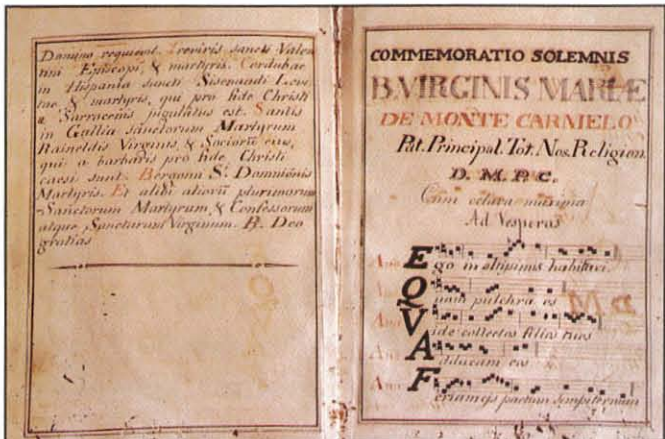 Domino requievit. Treviris sancti Valen
tini Episcopi, & martyris. Cordubae
in Hispania sancti Sisenandi Levi
tae, & martyris, qui pro fide Christi
a Sarracenis jugulatus est. Santis
in Gallia sanctorum Martyrum
Raineldis Virginis, & Sociorum ejus,
qui a barbaris pro fide Christi
caesi sunt. Bergomi S. Domnionis
Martyris. Et alibi aliorum plurimorum
Sanctorum Martyrum, & Confessorum
atque Sanctarum Virginum. R. Deo
gratias
COMMEMORATIO SOLEMNIS
B. VIRGINIS MARIÆ
DE MONTE CARMELO
Pat. Principal. Tot. Nos. Religion.
D. M. P. C.
Cum octava maxima
Ad Vesperas
Ana Ego in altissimis habitavi
Ana Quam pulchra es
Ana Vide collectos filios tuos
Ana Adducam eos
Ana Feriam eis pactum sempiternum